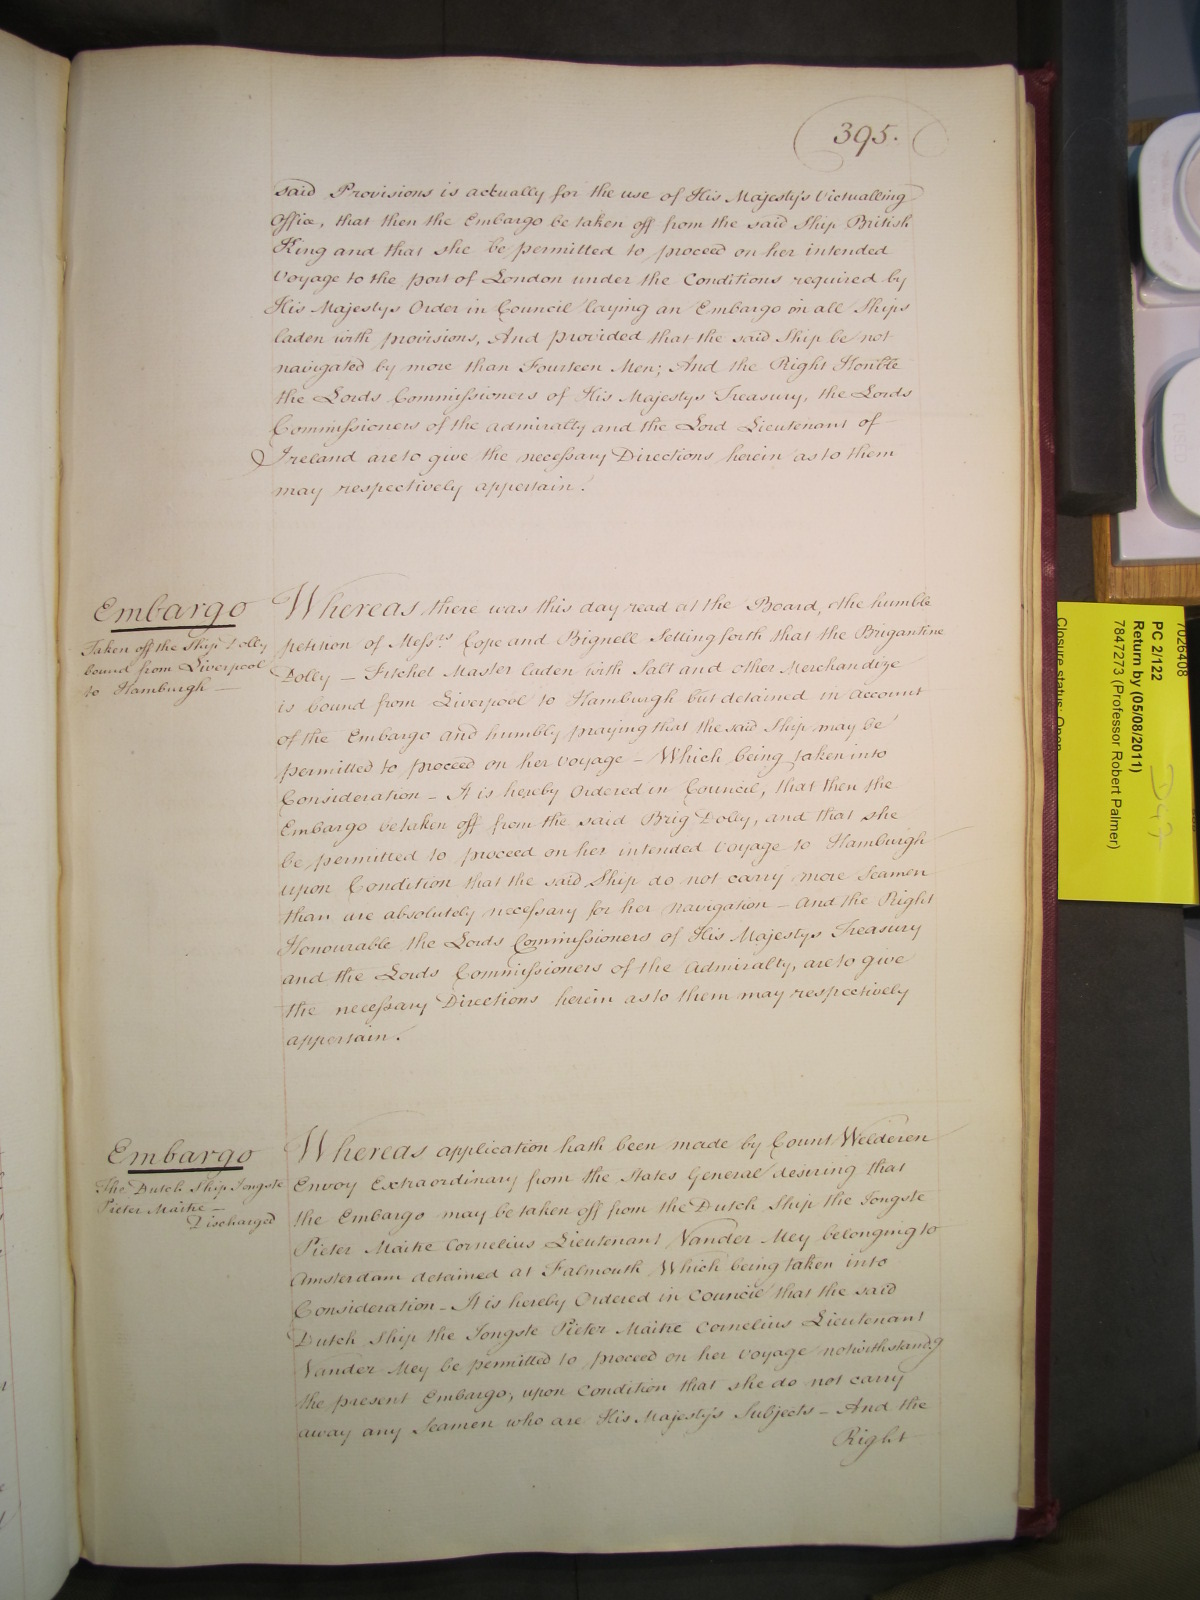 395.
said Provisions is actually for the use of His Majesty's Victualling
Office, that then the Embargo be taken off from the said Ship British
King and that she be permitted to proceed on her intended
Voyage to the port of London under the Conditions required by
His Majestys Order in Council laying an Embargo on all Ships
laden with provisions, And provided that the said Ship be not
navigated by more than Fourteen Men; And the Right Honble
the Lords Commissioners of His Majestys Treasury, the Lords
Commissioners of the admiralty and the Lord Lieutenant of
Ireland are to give the necessary Directions herein as to them
may respectively appertain.
Embargo
Taken off the Ship Dolly
bound from Liverpool
to Hamburgh —
Whereas there was this day read at the Board, the humble
petition of Messrs. Cope and Bignell Setting forth that the Brigantine
Dolly — Fitchet Master laden with Salt and other Merchandize
is bound from Liverpool to Hamburgh but detained in account
of the Embargo and humbly praying that the said Ship may be
permitted to proceed on her Voyage — Which being taken into
Consideration — It is hereby Ordered in Council, that then the
Embargo be taken off from the said Brig Dolly, and that she
be permitted to proceed on her intended Voyage to Hamburgh
upon Condition that the said Ship do not carry more Seamen
than are absolutely necessary for her Navigation — And the Right
Honourable the Lords Commissioners of His Majestys Treasury
and the Lords Commissioners of the Admiralty, are to give
the necessary Directions herein as to them may respectively
appertain.
Embargo
The Dutch Ship Jongste
Pieter Maitie —
Discharged
Whereas application hath been made by Count Welderen
Envoy Extraordinary from the States General desiring that
the Embargo may be taken off from the Dutch Ship the Jongste
Pieter Maitie Cornelius Lieutenant Vander Mey belonging to
Amsterdam detained at Falmouth Which being taken into
Consideration — It is hereby Ordered in Council that the said
Dutch Ship the Jongste Pieter Maitie Cornelius Lieutenant
Vander Mey be permitted to proceed on her Voyage notwithstandg
the present Embargo, upon Condition that she do not carry
away any Seamen who are His Majesty's Subjects — And the
Right
7026408
PC 2/122
Return by (05/08/2011)
7847273 (Professor Robert Palmer)
Closure status: Open